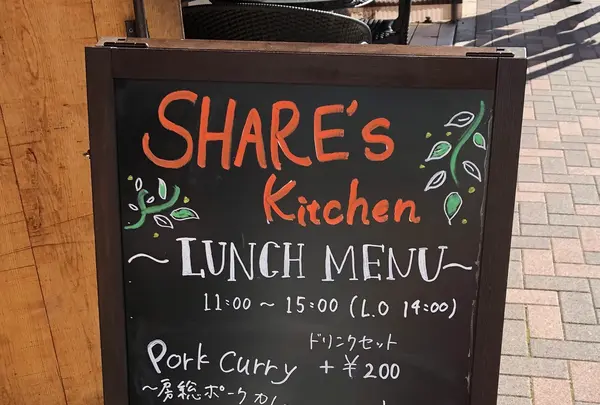 SHARE's
Kitchen
~ LUNCH MENU ~
11:00 ~ 15:00 (L.O 14:00)
ドリンクセット
Pork curry + ¥200
~房総ポークカ